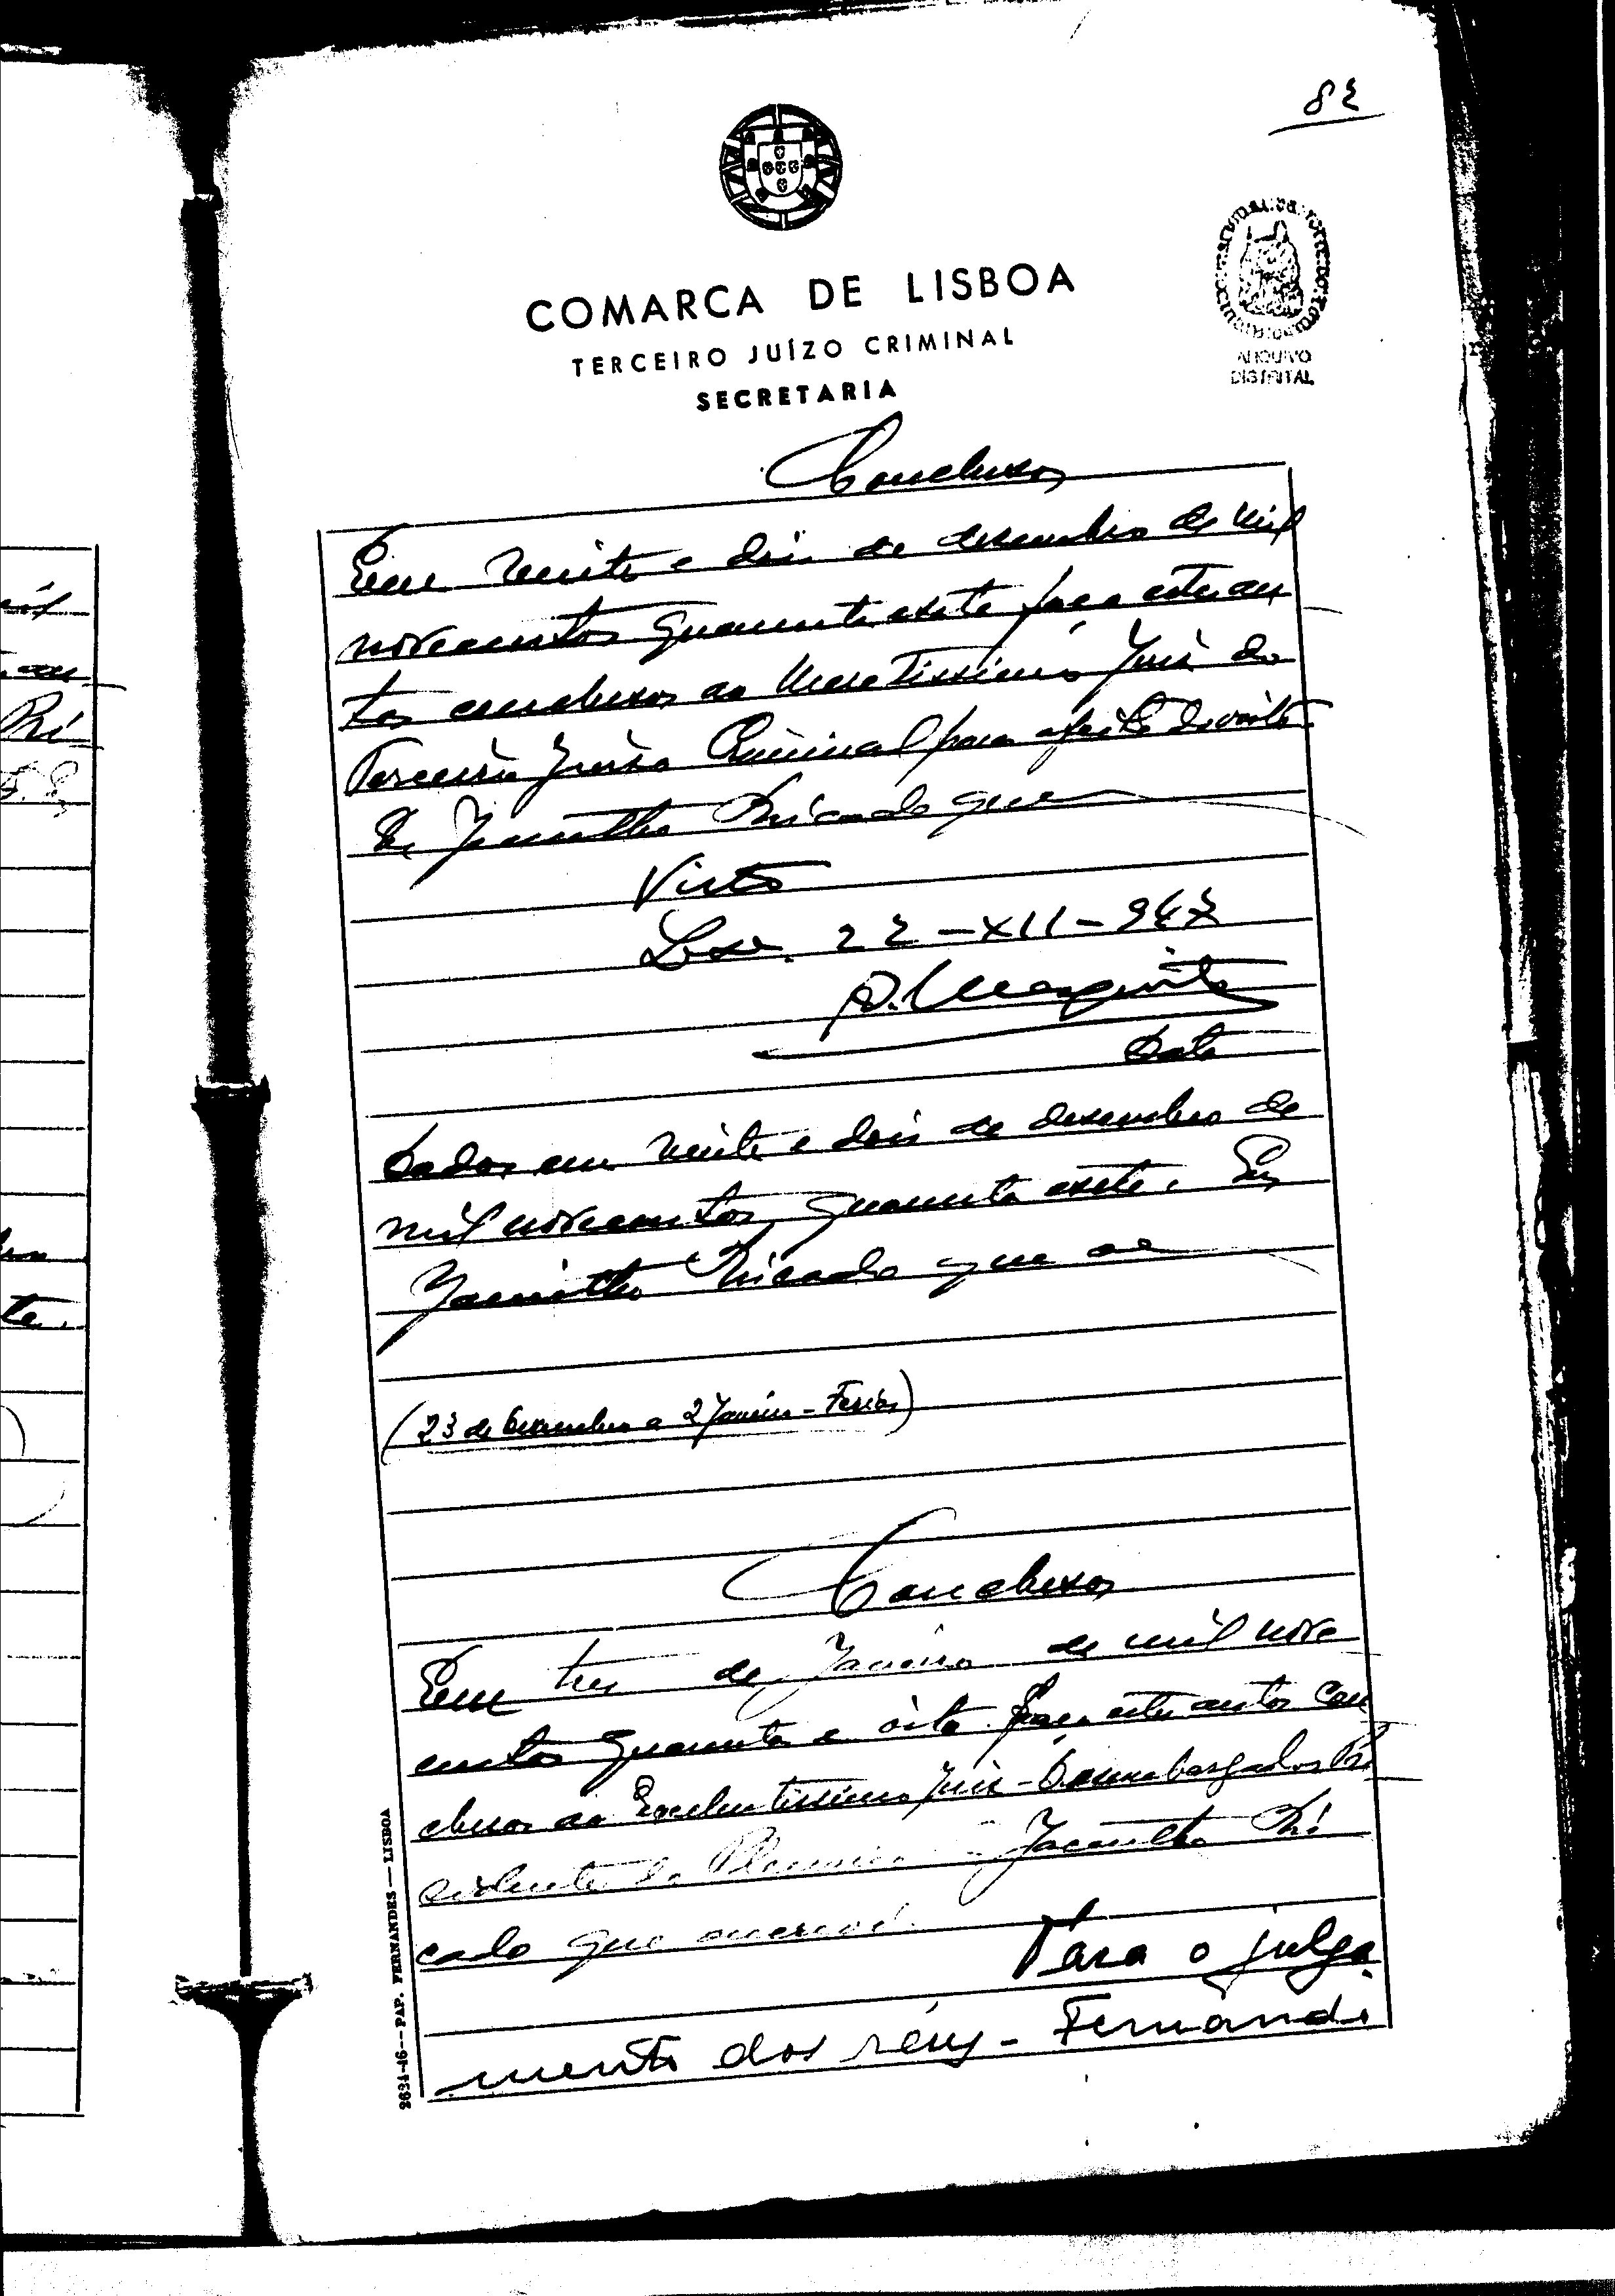 82
COMARCA DE LISBOA
TERCEIRO JUÍZO CRIMINAL
SECRETARIA
ARQUIVO
DISTRITAL
Conclusos
Em vinte e dois de dezembro de mil
novecentos quarenta e sete faço estes au
tos conclusos ao Meretissimo Juiz do
Terceiro Juizo Criminal para efeito de visto
Jacintho Ricardo que
Visto
Lxa. 22-XII-947
Data
Dados em vinte e dois de dezembro de
mil novecentos quarenta e sete. Eu,
Jacintho Ricardo que as
(23 de Dezembro a 2 Janeiro - Ferias)
Conclusos
Em tres de Janeiro de mil nove
centos quarenta e oito faço estes autos con
clusos ao Excelentissimo Juiz-Desembargador Pre
sidente do Plenario Jacintho Ri
cardo que escrevi.
Para o julga
mento dos réus - Fernando
2634-46 — PAP. FERNANDES — LISBOA